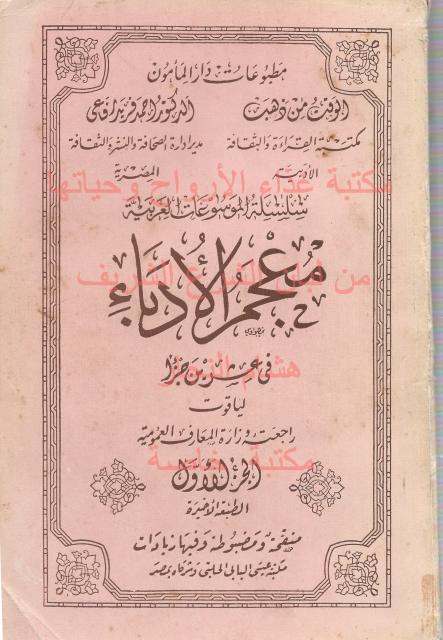 مطبوعات دار المأمون
الوقت من ذهب
الدكتور أحمد فريد رفاعي
مكتبة القراءة والثقافة
مدير إدارة الصحافة والنشر والثقافة
الأدبية
المصرية
مكتبة غذاء الأرواح وحياتها
سلسلة الموسوعات العربية
معجم الأدباء
من لبان الشرع الشريف
في عشرين جزءا
هشام النجار
لياقوت
راجعته وزارة المعارف العمومية
مكتبة خاصة
الجزء الأول
الطبعة الأخيرة
منقحة ومضبوطة وفيها زيادات
مكتبة عيسى البابي الحلبي وشركاه بمصر